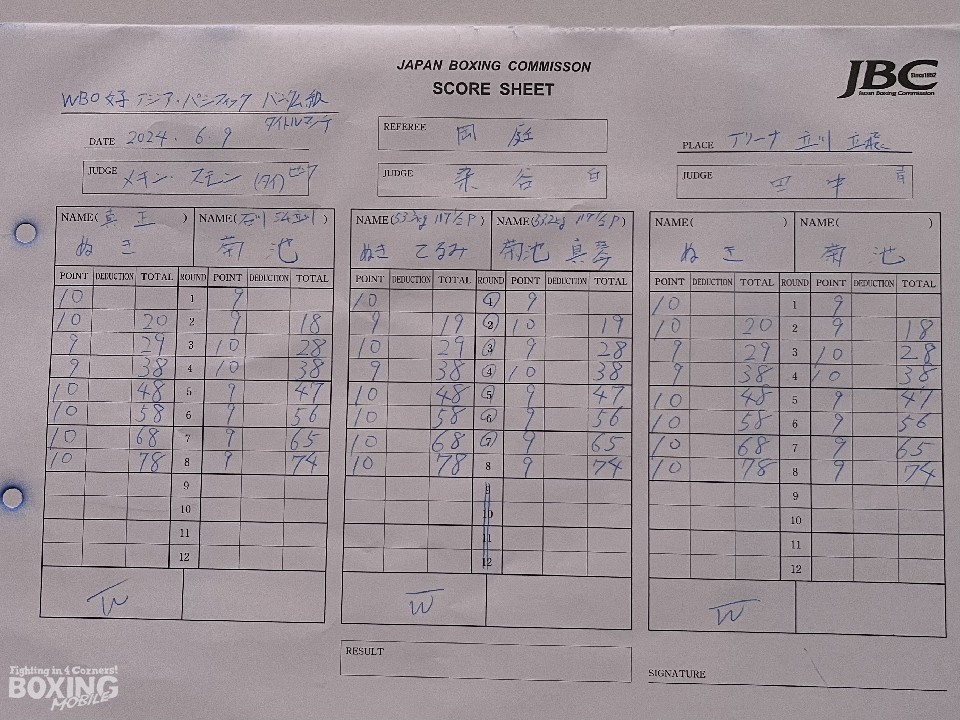 JAPAN BOXING COMMISSON
SCORE SHEET
JBC
Since1952
Japan Boxing Commission
WBO女子 アジア・パシフィック バンタム級
タイトルマッチ
DATE 2024. 6. 9
REFEREE 岡庭
PLACE アリーナ立川立飛
JUDGE (タイ)
JUDGE 染谷
JUDGE 田中
NAME(真正) NAME(石川 立川) NAME(53.2kg 117½P) NAME(53.2kg 117½P) NAME( ) NAME( )
ぬき 菊池 ぬき てるみ 菊池 真琴 ぬき 菊池
POINT DEDUCTION TOTAL ROUND POINT DEDUCTION TOTAL POINT DEDUCTION TOTAL ROUND POINT DEDUCTION TOTAL POINT DEDUCTION TOTAL ROUND POINT DEDUCTION TOTAL
10 1 9 10 1 9 10 1 9
10 20 2 9 18 9 19 2 10 19 10 20 2 9 18
9 29 3 10 28 10 29 3 9 28 9 29 3 10 28
9 38 4 10 38 9 38 4 10 38 9 38 4 10 38
10 48 5 9 47 10 48 5 9 47 10 48 5 9 47
10 58 6 9 56 10 58 6 9 56 10 58 6 9 56
10 68 7 9 65 10 68 7 9 65 10 68 7 9 65
10 78 8 9 74 10 78 8 9 74 10 78 8 9 74
9 9 9
10 10 10
11 11 11
12 12 12
W W W
RESULT
SIGNATURE
Fighting in 4 Corners!
BOXING
MOBILE